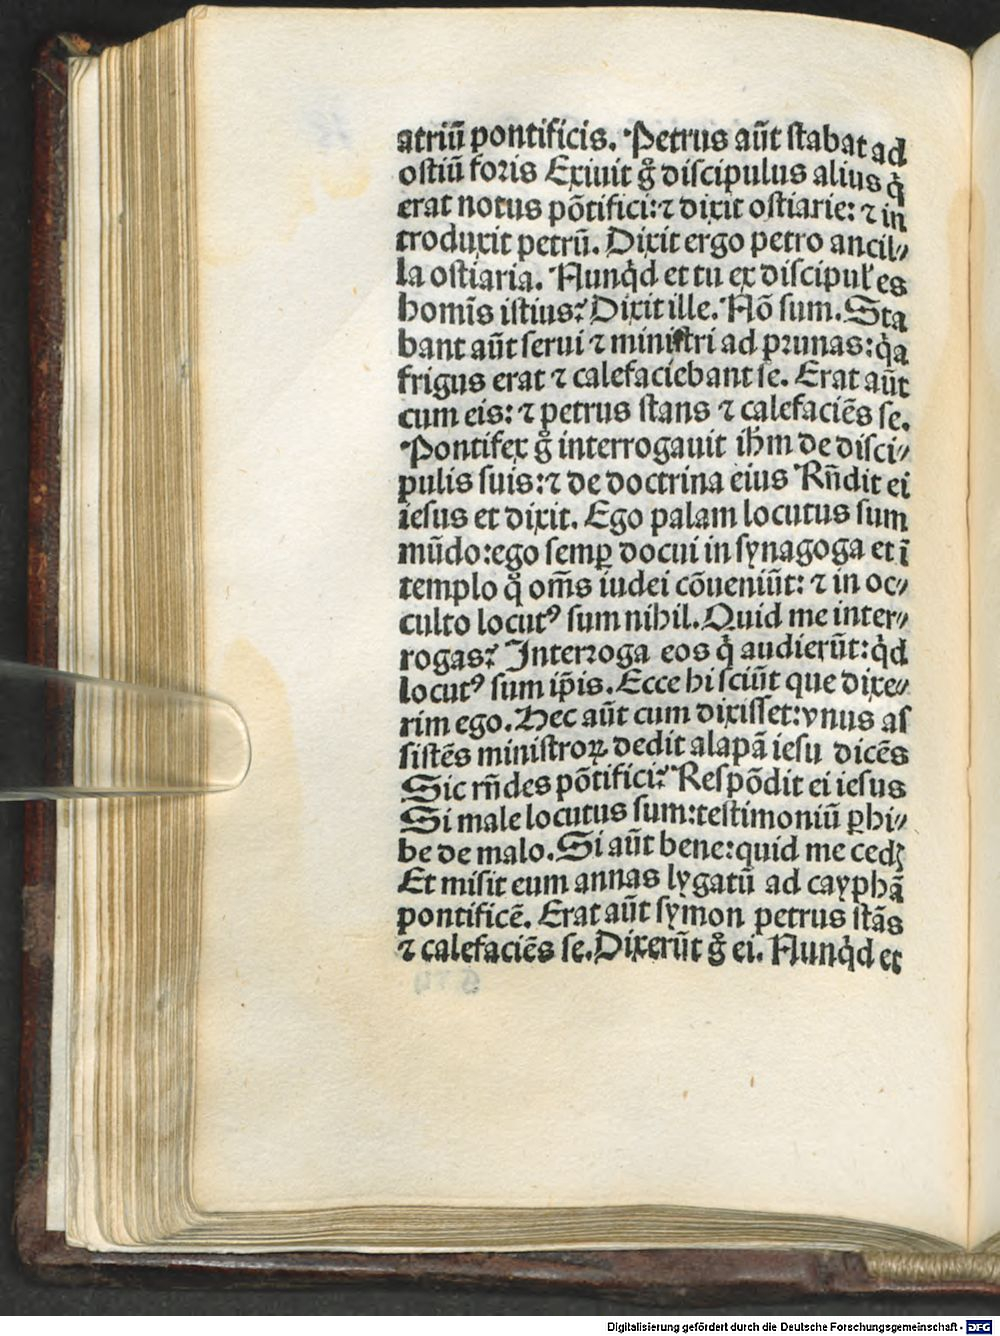 atriū pontificis. Petrus aūt stabat ad
ostiū foris Exiuit gͦ discipulus alius q̇
erat notus pōtifici: ⁊ dixit ostiarie: ⁊ in
troduxit petrū. Dixit ergo petro ancil⸗
la ostiaria. Nunq̇d et tu ex discipul' es
homīs istius? Dixit ille. Nō sum. Sta
bant aūt serui ⁊ ministri ad prunas: q̇a
frigus erat ⁊ calefaciebant se. Erat aūt
cum eis: ⁊ petrus stans ⁊ calefaciēs se.
Pontifex gͦ interrogauit ihm̄ de disci⸗
pulis suis: ⁊ de doctrina eius Rn̄dit ei
iesus et dixit. Ego palam locutus sum
mūdo: ego semꝑ docui in synagoga et ī
templo q̊ om̄s iudei cōueniūt: ⁊ in oc⸗
culto locutꝰ sum nihil. Quid me inter⸗
rogas? Interroga eos q̇ audierūt: q̇d
locutꝰ sum ip̄is. Ecce hi sciūt que dixe⸗
rim ego. Hec aūt cum dixisset: vnus as
sistēs ministroꝝ dedit alapā iesu dicēs
Sic rn̄des pōtifici? Respōdit ei iesus
Si male locutus sum: testimoniū ꝑhi⸗
be de malo. Si aūt bene: quid me cedꝫ
Et misit eum annas lygatū ad cayphā
pontificē. Erat aūt symon petrus stās
⁊ calefaciēs se. Dixerūt gͦ ei. Nunq̇d et
Digitalisierung gefördert durch die Deutsche Forschungsgemeinschaft - DFG